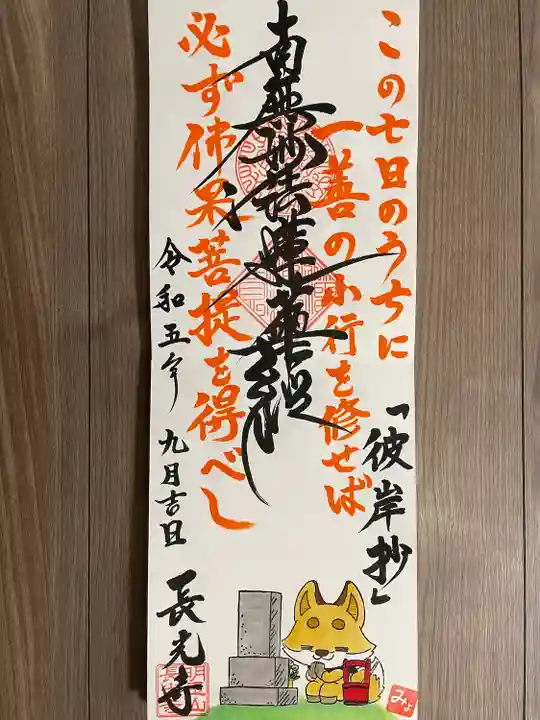 この七日のうちに
一善の小行を修せば
必ず佛果菩提を得べし
「彼岸抄」
南無妙法蓮華経
令和五年 九月吉日
長光寺
みょ